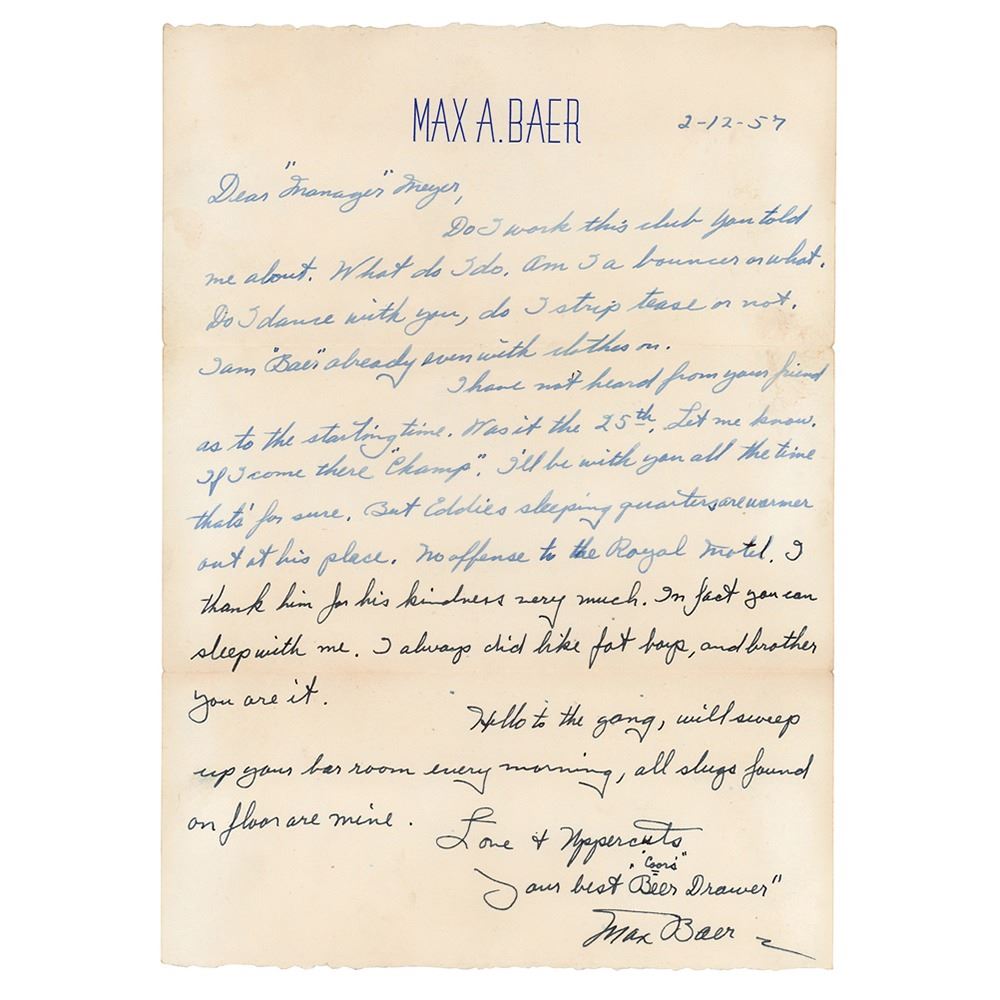 MAX A. BAER
2-12-57
Dear "Manager" Meyer,
Do I work this club you told
me about. What do I do. Am I a bouncer or what.
Do I dance with you, do I strip tease or not.
I am "Baer" already even with clothes on.
I have not heard from your friend
as to the starting time. Was it the 25th. Let me know.
If I come there "Champ". I'll be with you all the time
thats' for sure. But Eddies sleeping quarters are warmer
out at his place. No offense to the Royal Motel. I
thank him for his kindness very much. In fact you can
sleep with me. I always did like fat boys, and brother
you are it.
Hello to the gang, will sweep
up your bar room every morning, all slugs found
on floor are mine.
Love & Uppercuts
"Coors"
Your best "Beer Drawer"
Max Baer